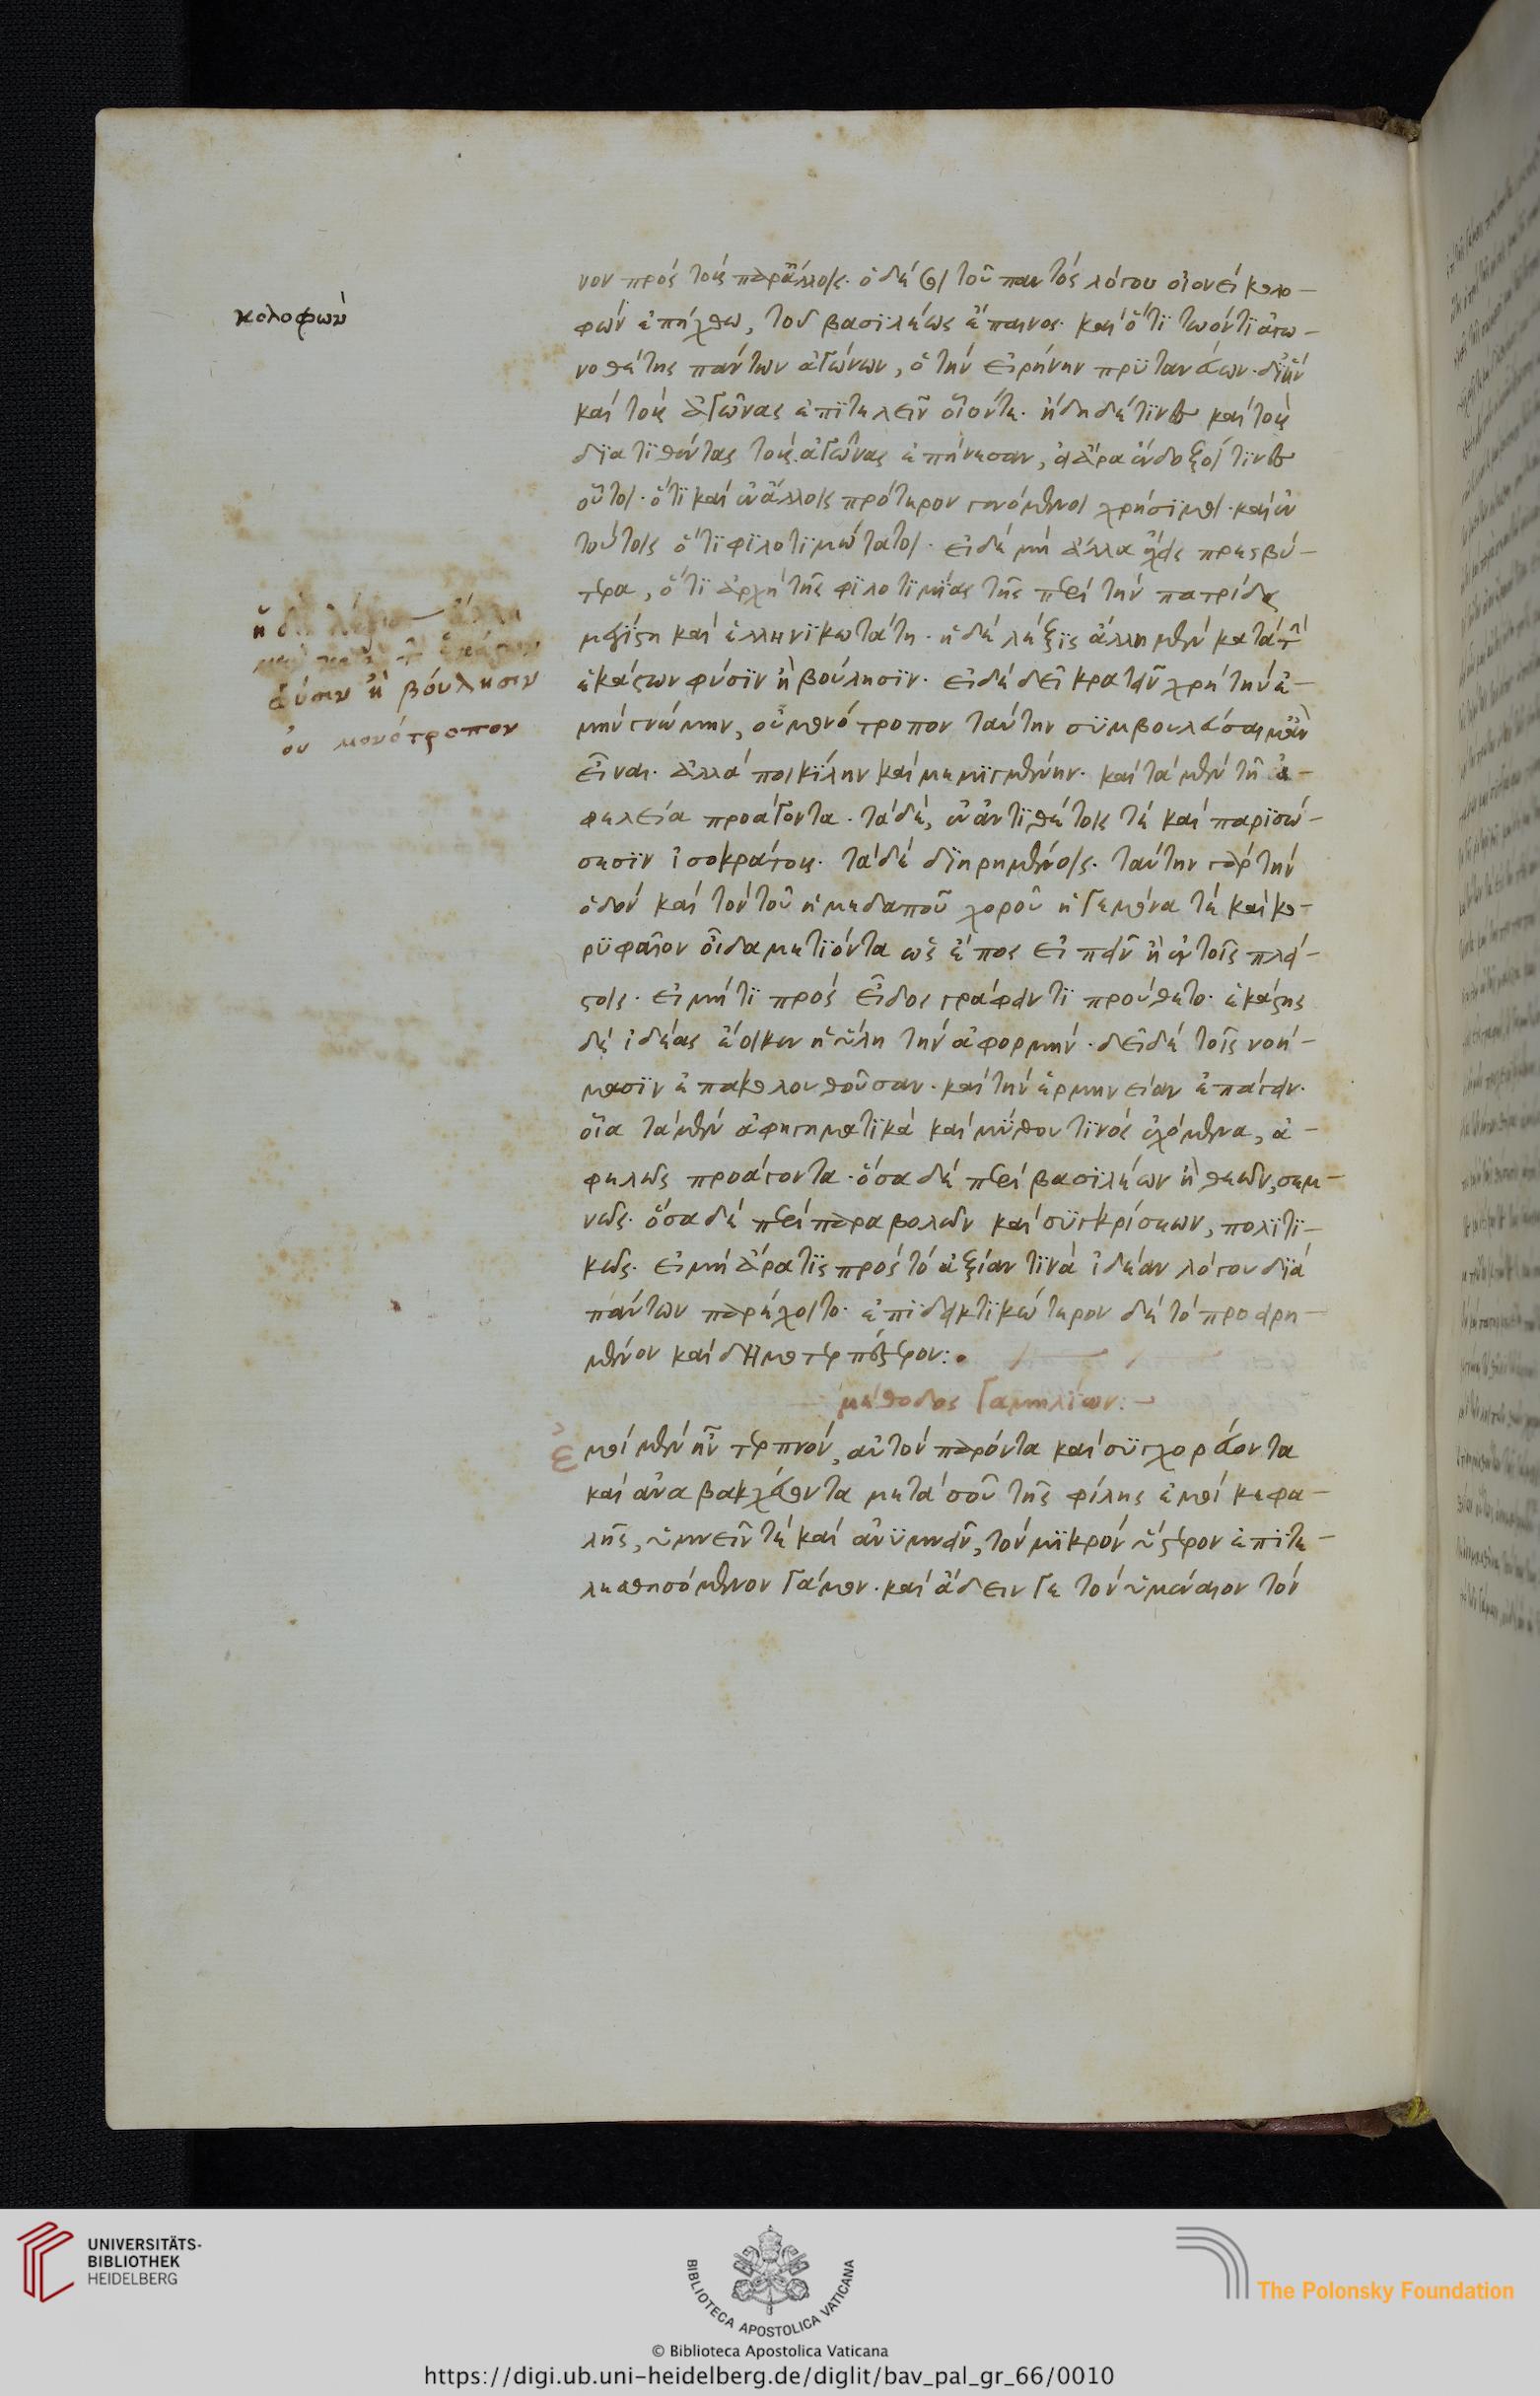 κολοφὼν
νον πρὸς τοὺς παρἄλλοις· ὁ δέ σοι τοῦ παντὸς λόγου οἱονεὶ κολο-
φὼν ἐπήχθω, τοῦ βασιλέως ἔπαινος· καὶ ὅτι τωόντι ἀγω-
νοθέτης πάντων ἀγώνων, ὁ τὴν εἰρήνην πρυτανεύων· δι ἣν
καὶ τοὺς ἀγῶνας ἐπιτελεῖν οἷόντε· ἤδη δέ τινες καὶ τοὺς
διατιθέντας τοὺς ἀγῶνας ἐπήνεσαν, εἰ ἄρα ἔνδοξοί τινες
οὗτοι· ὅτι καὶ ἐν ἄλλοις πρότερον γενόμενοι χρήσιμοι· καὶ ἐν
τούτοις ὅτι φιλοτιμώτατοι· εἰ δὲ μὴ ἄλλα ἔχεις πρεσβύ-
τερα, ὅτι ἀρχὴ τῆς φιλοτιμίας τῆς περὶ τὴν πατρίδα
μεγίστη καὶ ἑλληνικωτάτη· ἡ δὲ λέξις ἄλλη μὲν κατὰ τὴν
ἑκάστων φύσιν ἢ βούλησιν· εἰ δὲ δεῖ κρατεῖν χρὴ τὴν ἐ-
μὴν γνώμην, οὐ μονότροπον ταύτην συμβουλεύσαιμ ἂν
εἶναι· ἀλλὰ ποικίλην καὶ μεμιγμένην· καὶ τὰ μὲν τῆ ἀ-
φελεία προάγοντα· τὰ δὲ, ἐν ἀντιθέτοις τὲ καὶ παρισώ-
σεσιν ἰσοκράτους· τὰ δὲ διηρημένοις· ταύτην γὰρ τὴν
ὁδὸν καὶ τὸν τοῦ ἡμεδαποῦ χοροῦ ἡγεμόνα τὲ καὶ κο-
ρυφαῖον οἶδα μετιόντα ὡς ἔπος εἰπεῖν ἢ ἐν τοῖς πλεί-
στοις· εἰ μή τι πρὸς εἶδος γράφειν τι προύθετο· ἑκάστης
δὲ ἰδέας ἔοικεν ἡ ὕλη τὴν ἀφορμήν· δεῖ δὲ τοῖς νοή-
μασιν ἐπακολουθοῦσαν· καὶ τὴν ἑρμηνείαν ἐπάγειν·
οἷα τὰ μὲν ἀφηγηματικὰ καὶ μύθου τινὸς ἐχόμενα, ἀ-
φελῶς προάγοντα· ὅσα δὲ περὶ βασιλέων ἢ θεῶν, σεμ-
νῶς· ὅσα δὲ περὶ παραβολῶν καὶ συγκρίσεων, πολιτι-
κῶς· εἰ μὴ ἄρα τις πρὸς τὸ ἀξίαν τινὰ ἰδέαν λόγου διὰ
πάντων παρέχοιτο· ἐπιδεικτικώτερον δὲ τὸ προειρη-
μένον καὶ δημοτερπέστερον:
μέθοδος γαμηλίων:
ἐμοὶ μὲν ἦν τερπνὸν, αὐτὸν παρόντα καὶ συγχορεύοντα
καὶ ἀναβακχεύοντα μετὰ σοῦ τῆς φίλης ἐμοὶ κεφα-
λῆς, ὑμνεῖν τὲ καὶ ἀνυμνεῖν, τὸν μικρὸν ὕστερον ἐπιτε-
λεσθησόμενον γάμον· καὶ ἄδειν γε τὸν ὑμέναιον τὸν
ἡ δὲ λέξις ἄλλη
μὲν κατὰ τὴν ἑκάστων
φύσιν ἢ βούλησιν
οὐ μονότροπον
UNIVERSITÄTS-
BIBLIOTHEK
HEIDELBERG
BIBLIOTECA APOSTOLICA VATICANA
The Polonsky Foundation
© Biblioteca Apostolica Vaticana
https://digi.ub.uni-heidelberg.de/diglit/bav_pal_gr_66/0010